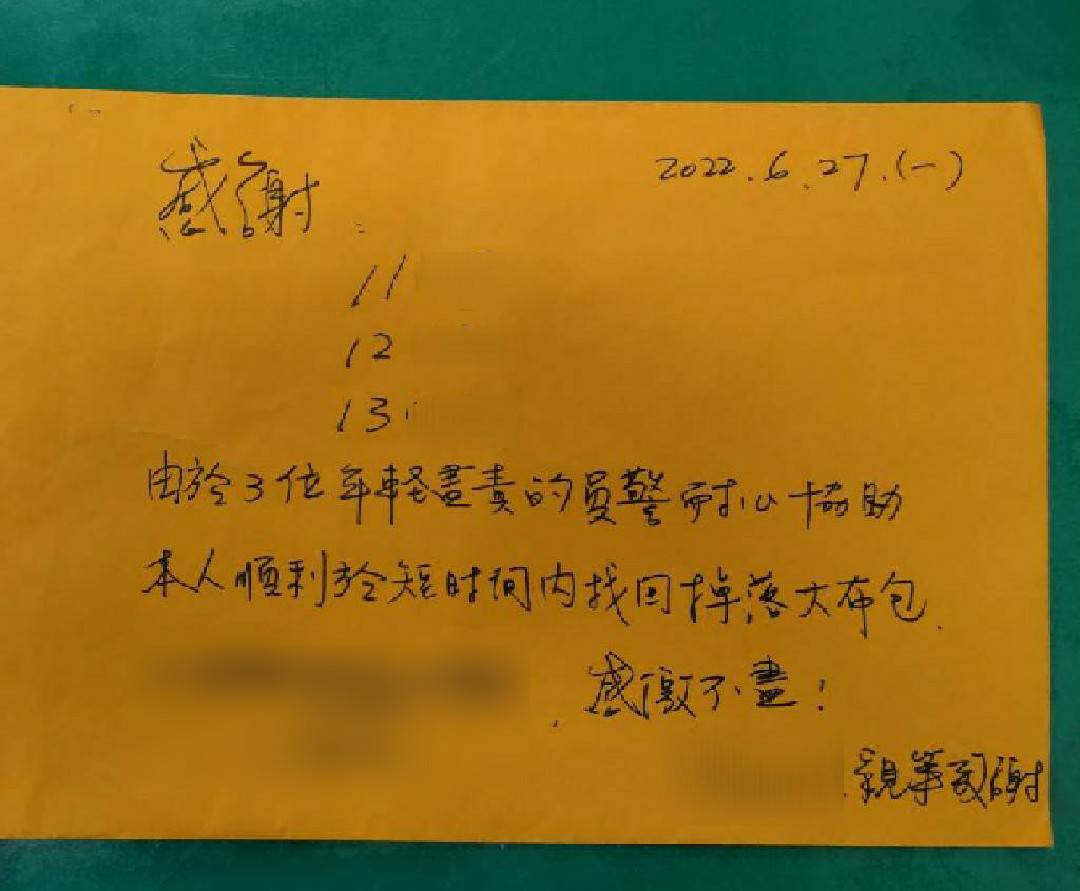 感謝: 2022.6.27.(一)
11
12
13
由於3位年軽盡責的員警耐心協助
本人順利於短时间内找回掉落大布包.
感激不盡!
親筆致謝